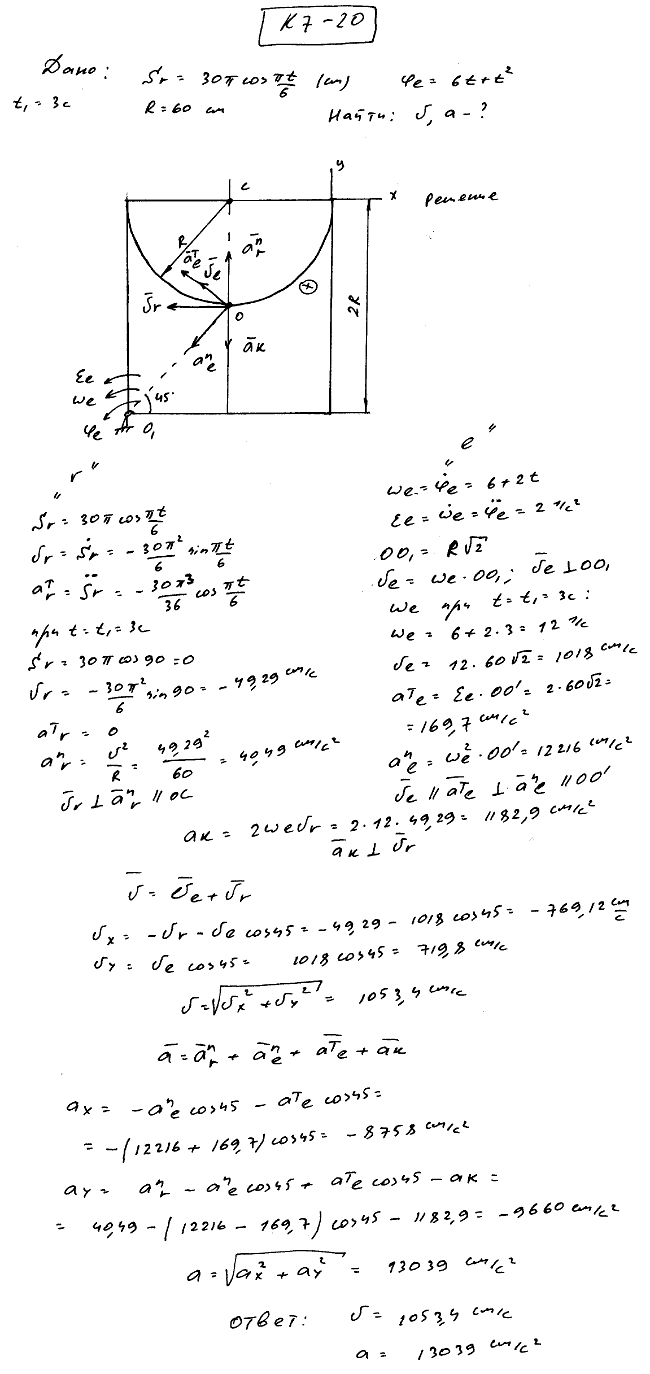 К7-20
Дано: Sr = 30π cos πt/6 (см) φe = 6t+t²
t₁ = 3c R = 60 см Найти: υ, a - ?
y
C
x Решение
R
āᵀe ῡe āⁿr
⊗
ῡr O 2R
aⁿe āк
εe
ωe 45°
φe O₁
"r" "e"
Sr = 30π cos πt/6
υr = Ṡr = - 30π²/6 sin πt/6
aᵀr = S̈r = - 30π³/36 cos πt/6
при t = t₁ = 3c
Sr = 30π cos 90 = 0
υr = - 30π²/6 sin 90 = - 49,29 см/с
aᵀr = 0
aⁿr = υ²/R = 49,29²/60 = 40,49 см/с²
ῡr ⊥ āⁿr ∥ OC
ωe = φ̇e = 6+2t
εe = ω̇e = φ̈e = 2 1/с²
OO₁ = R√2
υe = ωe · OO₁; ῡe ⊥ OO₁
ωe при t = t₁ = 3c:
ωe = 6+2·3 = 12 1/с
υe = 12·60√2 = 1018 см/с
aᵀe = εe · OO' = 2·60√2 =
= 169,7 см/с²
aⁿe = ωe² · OO' = 12216 см/с²
ῡe ∥ āᵀe ⊥ āⁿe ∥ OO'
aк = 2ωeυr = 2·12·49,29 = 1182,9 см/с²
āк ⊥ ῡr
ῡ = ῡe + ῡr
υx = -υr - υe cos45 = -49,29 - 1018 cos45 = -769,12 см/с
υy = υe cos45 = 1018 cos45 = 719,8 см/с
υ = √(υx² + υy²) = 1053,4 см/с
ā = āⁿr + āⁿe + āᵀe + āк
ax = -aⁿe cos45 - aᵀe cos45 =
= -(12216 + 169,7) cos45 = -8758 см/с²
ay = aⁿr - aⁿe cos45 + aᵀe cos45 - aк =
= 40,49 - (12216 - 169,7) cos45 - 1182,9 = -9660 см/с²
a = √(ax² + ay²) = 13039 см/с²
Ответ: υ = 1053,4 см/с
a = 13039 см/с²